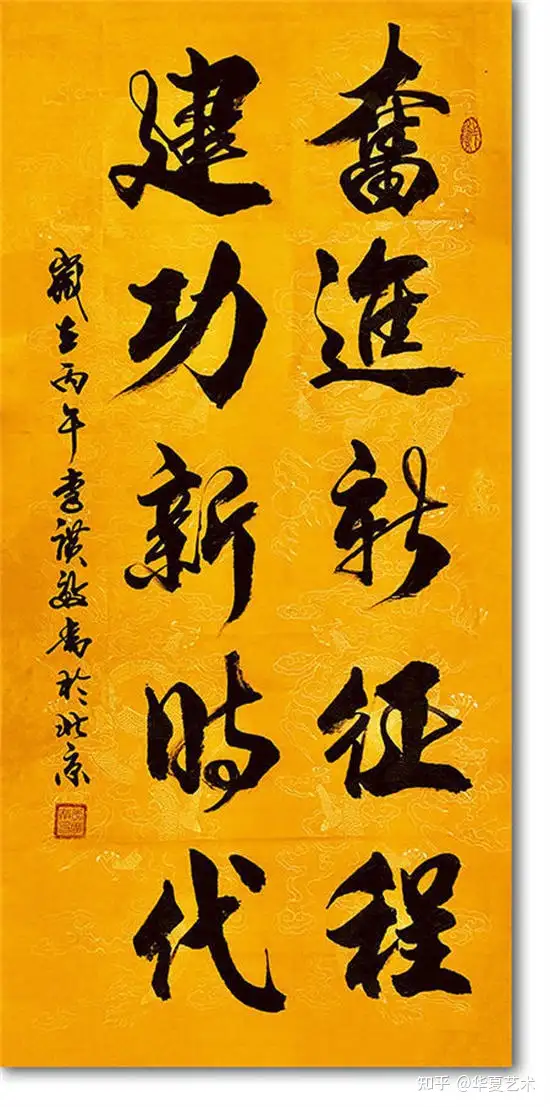 奮進新征程
建功新時代
歲在丙午李書於北京
知乎 @华夏艺术